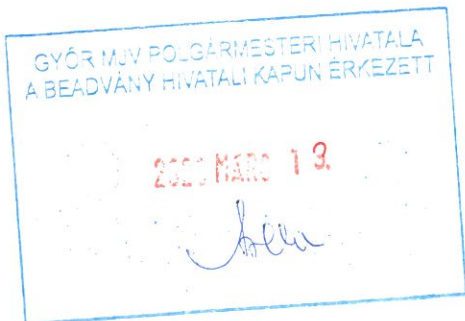 GYŐR MJV POLGÁRMESTERI HIVATALA
A BEADVÁNY HIVATALI KAPUN ÉRKEZETT
MÁRC 1 9.